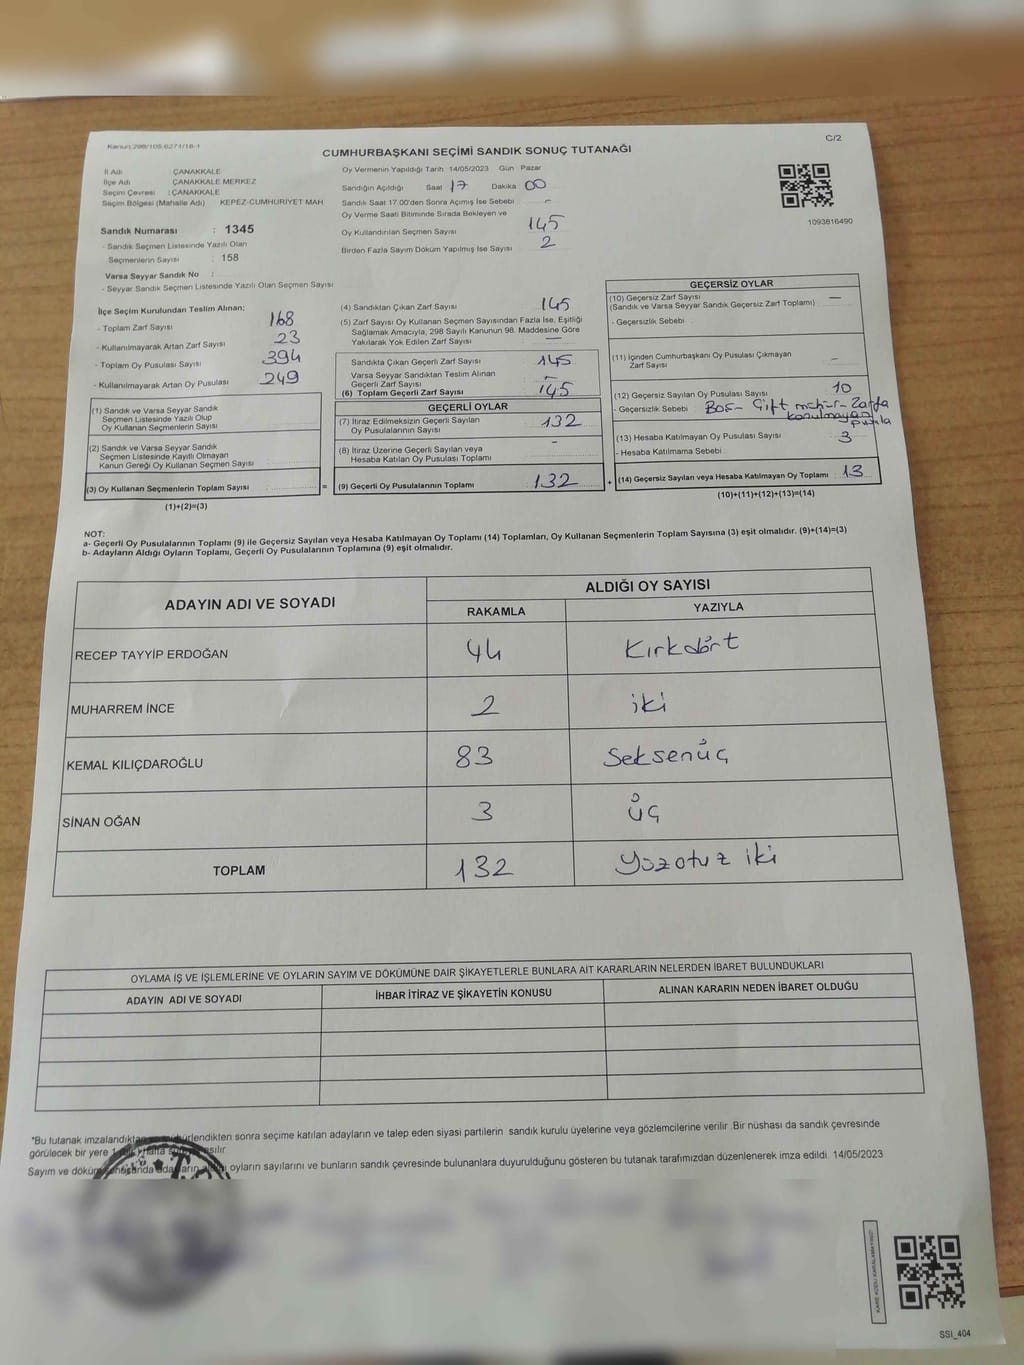 Kanun:298/105,6271/18-1
C/2
CUMHURBAŞKANI SEÇİMİ SANDIK SONUÇ TUTANAĞI
İl Adı ÇANAKKALE
İlçe Adı ÇANAKKALE MERKEZ
Seçim Çevresi : ÇANAKKALE
Seçim Bölgesi (Mahalle Adı) KEPEZ-CUMHURİYET MAH
Sandık Numarası : 1345
- Sandık Seçmen Listesinde Yazılı Olan
Seçmenlerin Sayısı : 158
Varsa Seyyar Sandık No :
- Seyyar Sandık Seçmen Listesinde Yazılı Olan Seçmen Sayısı
Oy Vermenin Yapıldığı Tarih 14/05/2023 Gün Pazar
Sandığın Açıldığı Saat 17 Dakika 00
Sandık Saat 17.00'den Sonra Açımış İse Sebebi -
Oy Verme Saati Bitiminde Sırada Bekleyen ve
Oy Kullandırılan Seçmen Sayısı 145
Birden Fazla Sayım Döküm Yapılmış İse Sayısı 2
1093816490
İlçe Seçim Kurulundan Teslim Alınan;
- Toplam Zarf Sayısı 168
- Kullanılmayarak Artan Zarf Sayısı 23
- Toplam Oy Pusulası Sayısı 394
- Kullanılmayarak Artan Oy Pusulası 249
(1) Sandık ve Varsa Seyyar Sandık
Seçmen Listesinde Yazılı Olup
Oy Kullanan Seçmenlerin Sayısı
(2) Sandık ve Varsa Seyyar Sandık
Seçmen Listesinde Kayıtlı Olmayan
Kanun Gereği Oy Kullanan Seçmen Sayısı
(3) Oy Kullanan Seçmenlerin Toplam Sayısı =
(1)+(2)=(3)
(4) Sandıktan Çıkan Zarf Sayısı 145
(5) Zarf Sayısı Oy Kullanan Seçmen Sayısından Fazla İse, Eşitliği
Sağlamak Amacıyla, 298 Sayılı Kanunun 98. Maddesine Göre
Yakılarak Yok Edilen Zarf Sayısı —
Sandıkta Çıkan Geçerli Zarf Sayısı 145
Varsa Seyyar Sandıktan Teslim Alınan
Geçerli Zarf Sayısı —
(6) Toplam Geçerli Zarf Sayısı 145
GEÇERLİ OYLAR
(7) İtiraz Edilmeksizin Geçerli Sayılan
Oy Pusulalarının Sayısı 132
(8) İtiraz Üzerine Geçerli Sayılan veya
Hesaba Katılan Oy Pusulası Toplamı -
(9) Geçerli Oy Pusulalarının Toplamı 132 +
GEÇERSİZ OYLAR
(10) Geçersiz Zarf Sayısı —
(Sandık ve Varsa Seyyar Sandık Geçersiz Zarf Toplamı)
- Geçersizlik Sebebi
(11) İçinden Cumhurbaşkanı Oy Pusulası Çıkmayan
Zarf Sayısı —
(12) Geçersiz Sayılan Oy Pusulası Sayısı 10
- Geçersizlik Sebebi Boş- Çift mühür- Zarfa
konulmayan
pusula
(13) Hesaba Katılmayan Oy Pusulası Sayısı 3
- Hesaba Katılmama Sebebi
(14) Geçersiz Sayılan veya Hesaba Katılmayan Oy Toplamı 13
(10)+(11)+(12)+(13)=(14)
NOT:
a- Geçerli Oy Pusulalarının Toplamı (9) ile Geçersiz Sayılan veya Hesaba Katılmayan Oy Toplamı (14) Toplamları, Oy Kullanan Seçmenlerin Toplam Sayısına (3) eşit olmalıdır. (9)+(14)=(3)
b- Adayların Aldığı Oyların Toplamı, Geçerli Oy Pusulalarının Toplamına (9) eşit olmalıdır.
ADAYIN ADI VE SOYADI ALDIĞI OY SAYISI
RAKAMLA YAZIYLA
RECEP TAYYİP ERDOĞAN 44 Kırkdört
MUHARREM İNCE 2 iki
KEMAL KILIÇDAROĞLU 83 Seksenüç
SİNAN OĞAN 3 üç
TOPLAM 132 Yüzotuz iki
OYLAMA İŞ VE İŞLEMLERİNE VE OYLARIN SAYIM VE DÖKÜMÜNE DAİR ŞİKAYETLERLE BUNLARA AİT KARARLARIN NELERDEN İBARET BULUNDUKLARI
ADAYIN ADI VE SOYADI İHBAR İTİRAZ VE ŞİKAYETİN KONUSU ALINAN KARARIN NEDEN İBARET OLDUĞU
*Bu tutanak imzalandıktan sonra mühürlendikten sonra seçime katılan adayların ve talep eden siyasi partilerin sandık kurulu üyelerine veya gözlemcilerine verilir .Bir nüshası da sandık çevresinde
görülecek bir yere 1 hafta asılır
Sayım ve döküm adayların aldığı oyların sayılarını ve bunların sandık çevresinde bulunanlara duyurulduğunu gösteren bu tutanak tarafımızdan düzenlenerek imza edildi. 14/05/2023
SSI_404